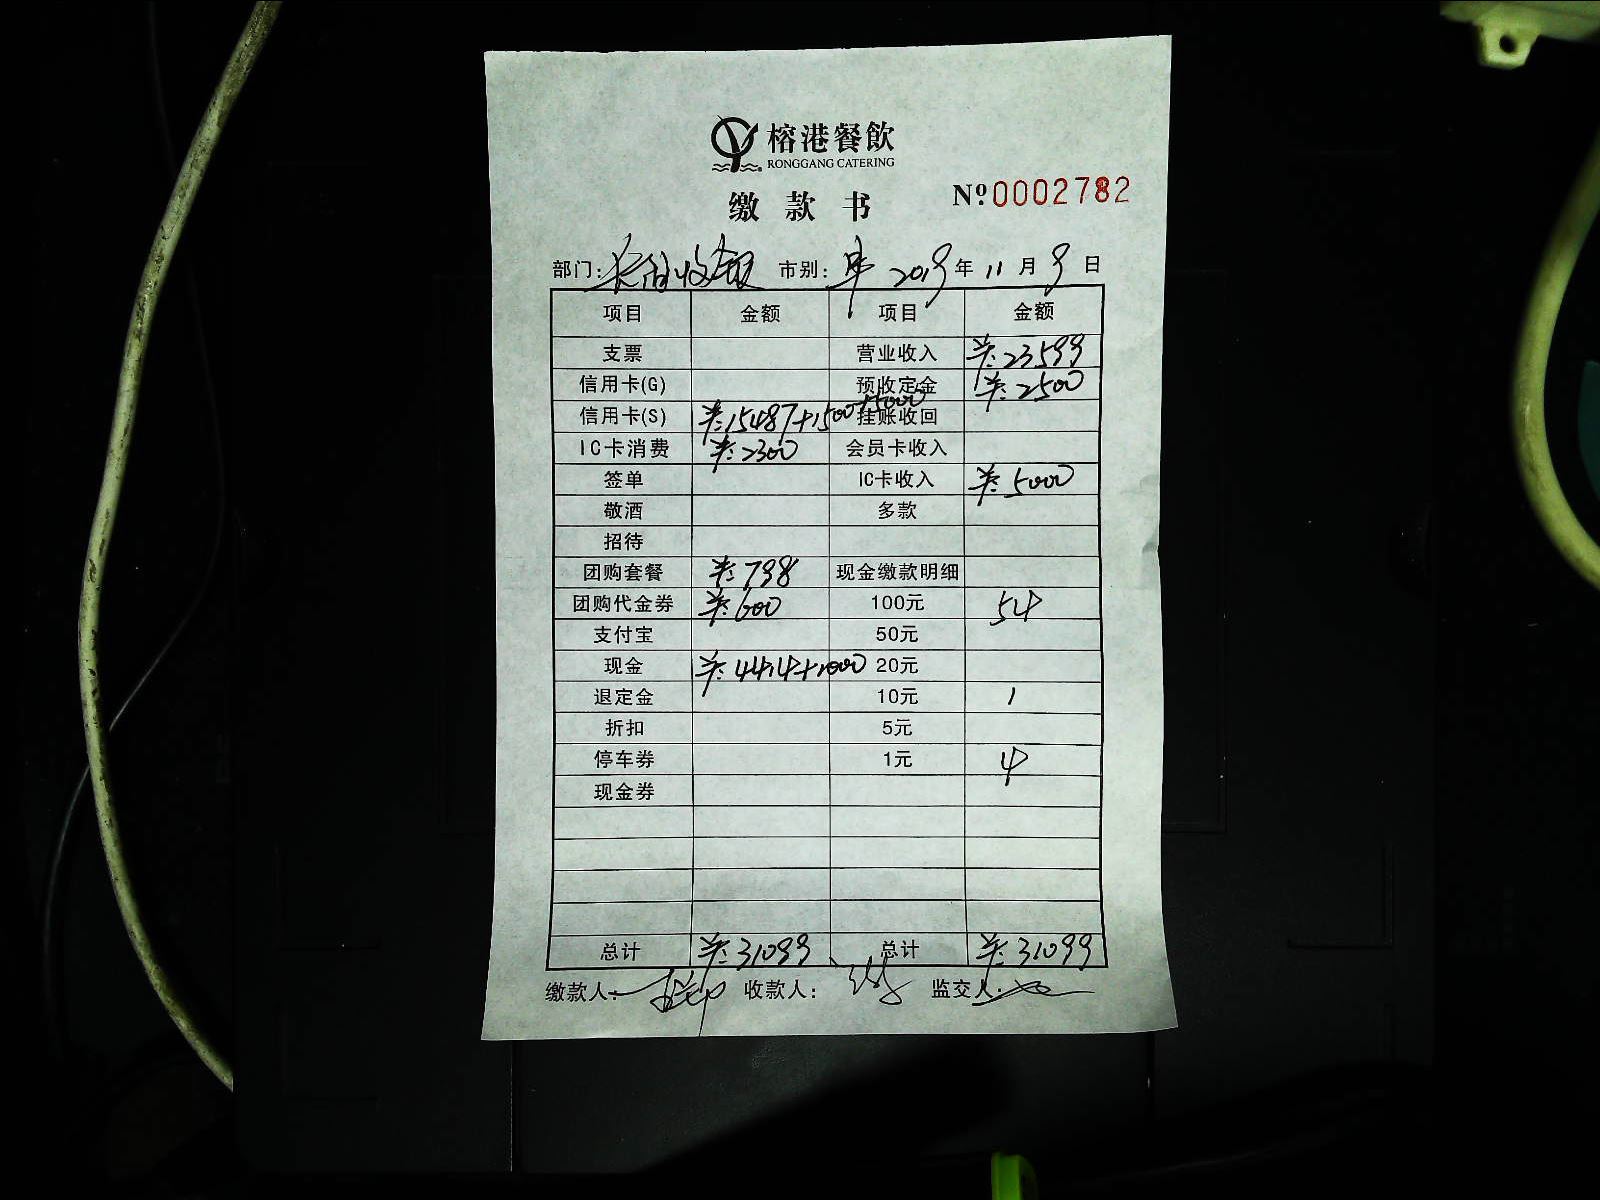 榕港餐飲
RONGGANG CATERING
缴款书 №0002782
部门: 收银 市别: 2019年11月9日
项目 金额 项目 金额
支票 营业收入 羊:23599
信用卡(G) 预收定金 羊:2500
信用卡(S) 羊:15487+1500+5000 挂账收回
IC卡消费 羊:2300 会员卡收入
签单 IC卡收入 羊:5000
敬酒 多款
招待
团购套餐 羊:798 现金缴款明细
团购代金券 羊:600 100元 54
支付宝 50元
现金 羊:4414+1000 20元
退定金 10元 1
折扣 5元
停车券 1元 4
现金券
总计 羊:31099 总计 羊:31099
缴款人: 收款人: 监交人: